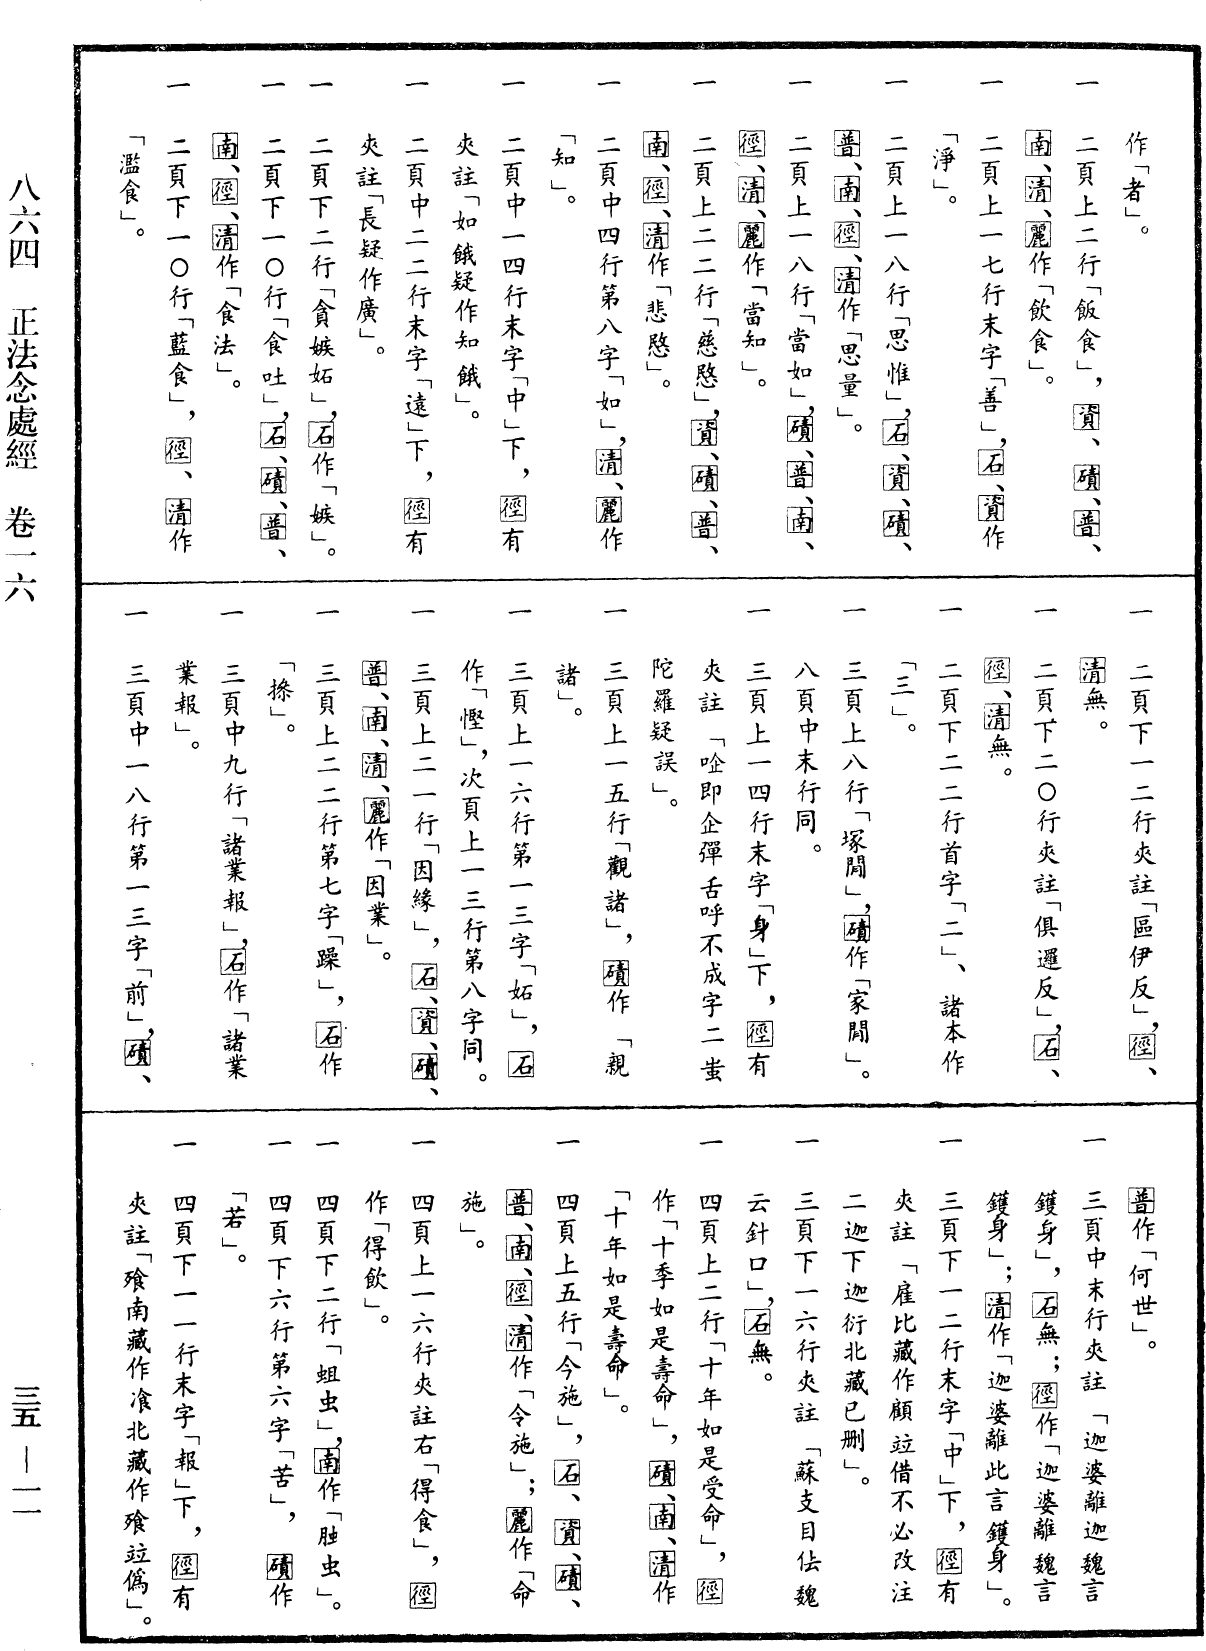 作「者」。
一 二頁上二行「飯食」，資、磧、普、
南、清、麗作「飲食」。
一 二頁上一七行末字「善」，石、資作
「淨」。
一 二頁上一八行「思惟」，石、資、磧、
普、南、徑、清作「思量」。
一 二頁上一八行「當如」，磧、普、南、
徑、清、麗作「當知」。
一 二頁上二二行「慈愍」，資、磧、普、
南、徑、清作「悲愍」。
一 二頁中四行第八字「如」，清、麗作
「知」。
一 二頁中一四行末字「中」下，徑有
夾註「如餓疑作知餓」。
一 二頁中二二行末字「遠」下，徑有
夾註「長疑作廣」。
一 二頁下二行「貪嫉妬」，石作「嫉」。
一 二頁下一〇行「食吐」，石、磧、普、
南、徑、清作「食法」。
一 二頁下一〇行「藍食」，徑、清作
「濫食」。
一 二頁下一二行夾註「區伊反」，徑、
清無。
一 二頁下二〇行夾註「俱邏反」，石、
徑、清無。
一 二頁下二二行首字「二」、諸本作
「三」。
一 三頁上八行「塚間」，磧作「家間」。
八頁中末行同。
一 三頁上一四行末字「身」下，徑有
夾註「唫即企彈舌呼不成字二蚩
陀羅疑誤」。
一 三頁上一五行「觀諸」，磧作「親
諸」。
一 三頁上一六行第一三字「妬」，石
作「慳」，次頁上一三行第八字同。
一 三頁上二一行「因緣」，石、資、磧、
普、南、清、麗作「因業」。
一 三頁上二二行第七字「躁」，石作
「摻」。
一 三頁中九行「諸業報」，石作「諸業
業報」。
一 三頁中一八行第一三字「前」，磧、
普作「何世」。
一 三頁中末行夾註「迦婆離迦魏言
鑊身」，石無；徑作「迦婆離魏言
鑊身」；清作「迦婆離此言鑊身」。
一 三頁下一二行末字「中」下，徑有
夾註「雇比藏作顧竝借不必改注
二迦下迦衍北藏已删」。
一 三頁下一六行夾註「蘇支目佉魏
云針口」，石無。
一 四頁上二行「十年如是受命」，徑
作「十季如是壽命」，磧、南、清作
「十年如是壽命」。
一 四頁上五行「今施」，石、資、磧、
普、南、徑、清作「令施」；麗作「命
施」。
一 四頁上一六行夾註右「得食」，徑
作「得飲」。
一 四頁下二行「蛆虫」，南作「胆虫」。
一 四頁下六行第六字「苦」，磧作
「若」。
一 四頁下一一行末字「報」下，徑有
夾註「飱南藏作飡北藏作飱竝僞」。
八六四 正法念處經 卷一六
三五 — 一一